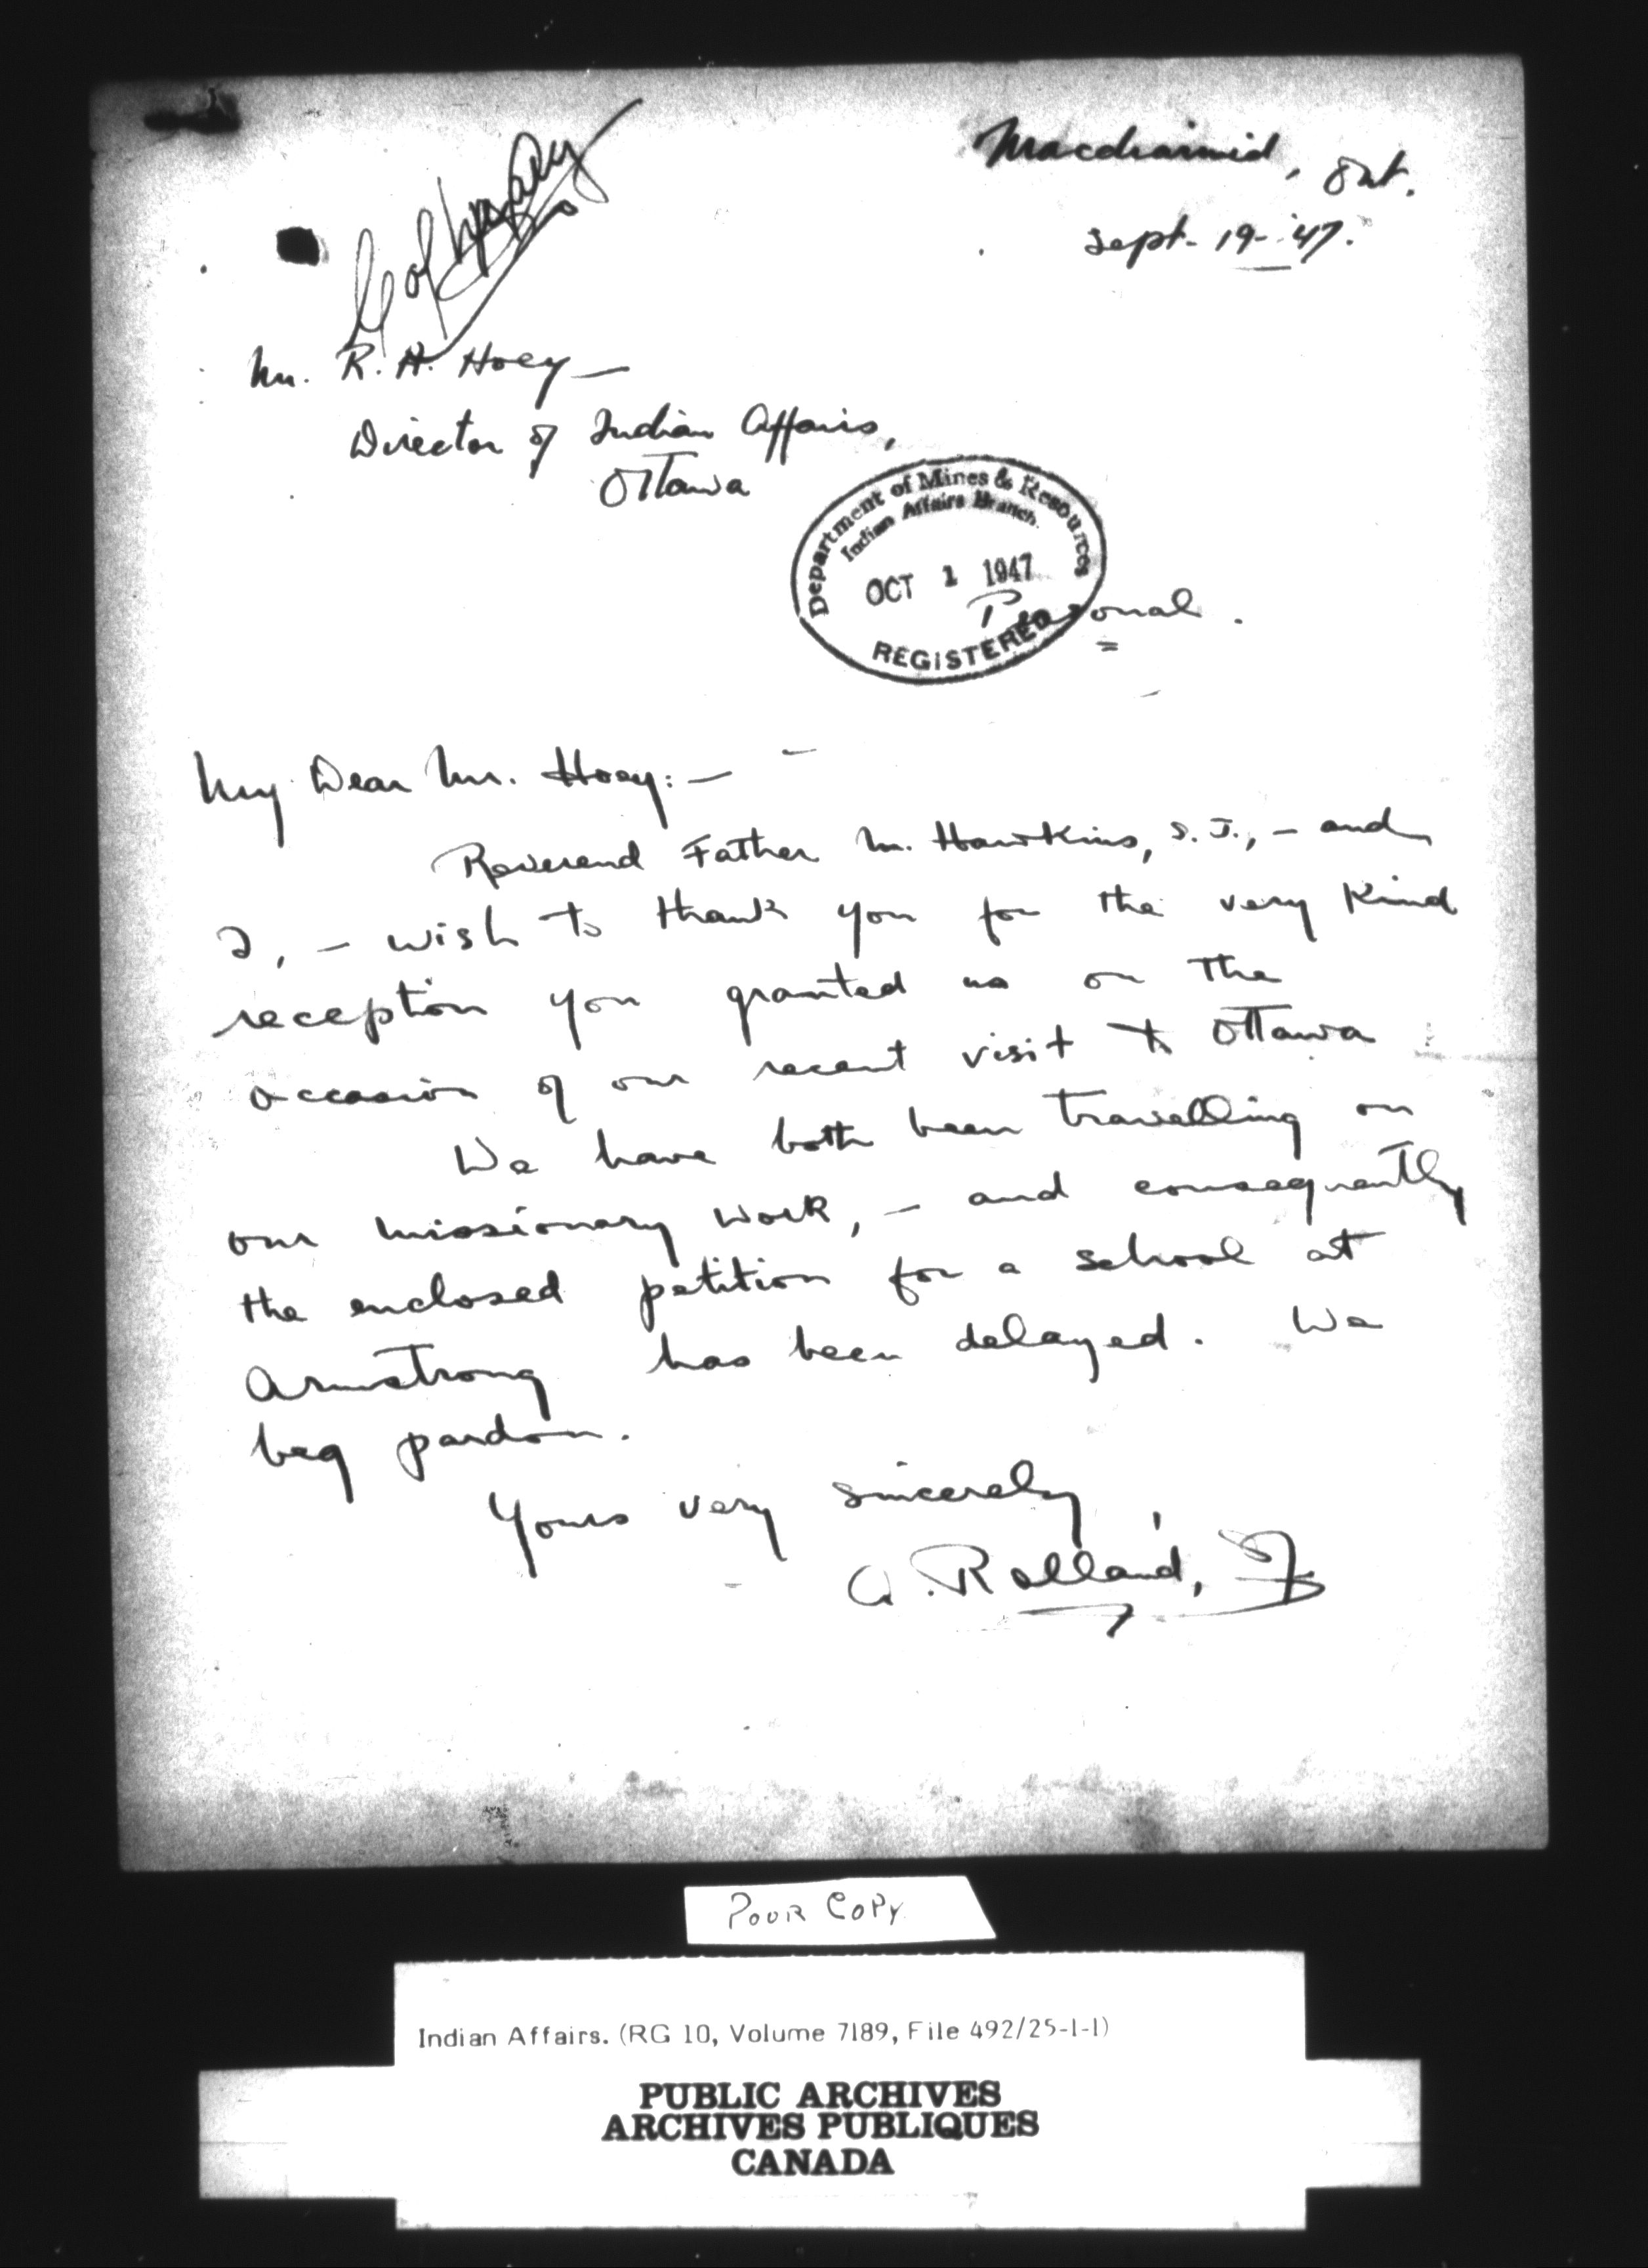 Macdiarmid, Ont.
Sept. 19-'47.
Mr. R. A. Hoey —
Director of Indian Affairs,
Ottawa
Department of Mines & Resources
Indian Affairs Branch
OCT 1 1947
REGISTERED
Personal.
My Dear Mr. Hoey: —
Reverend Father M. Hawkins, S.J., — and
I, — wish to thank you for the very kind
reception you granted us on the
occasion of our recent visit to Ottawa
We have both been travelling on
our missionary work, — and consequently
the enclosed petition for a school at
Armstrong has been delayed. We
beg pardon.
Yours very sincerely,
A. Rolland, SJ
POUR COPY
Indian Affairs. (RG 10, Volume 7189, File 492/25-1-1)
PUBLIC ARCHIVES
ARCHIVES PUBLIQUES
CANADA